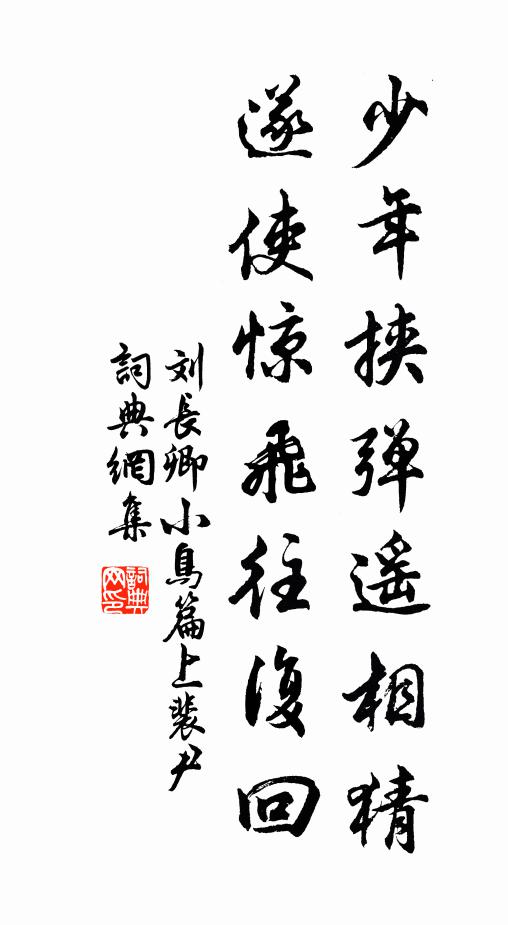 少年挟弹遥相猜
遂使惊飞往復回
刘長卿小鳥篇上裴尹
詞典網集
詞典
网印